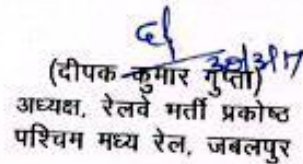 30/3/17
(दीपक कुमार गुप्ता)
अध्यक्ष, रेलवे भर्ती प्रकोष्ठ
पश्चिम मध्य रेल, जबलपुर